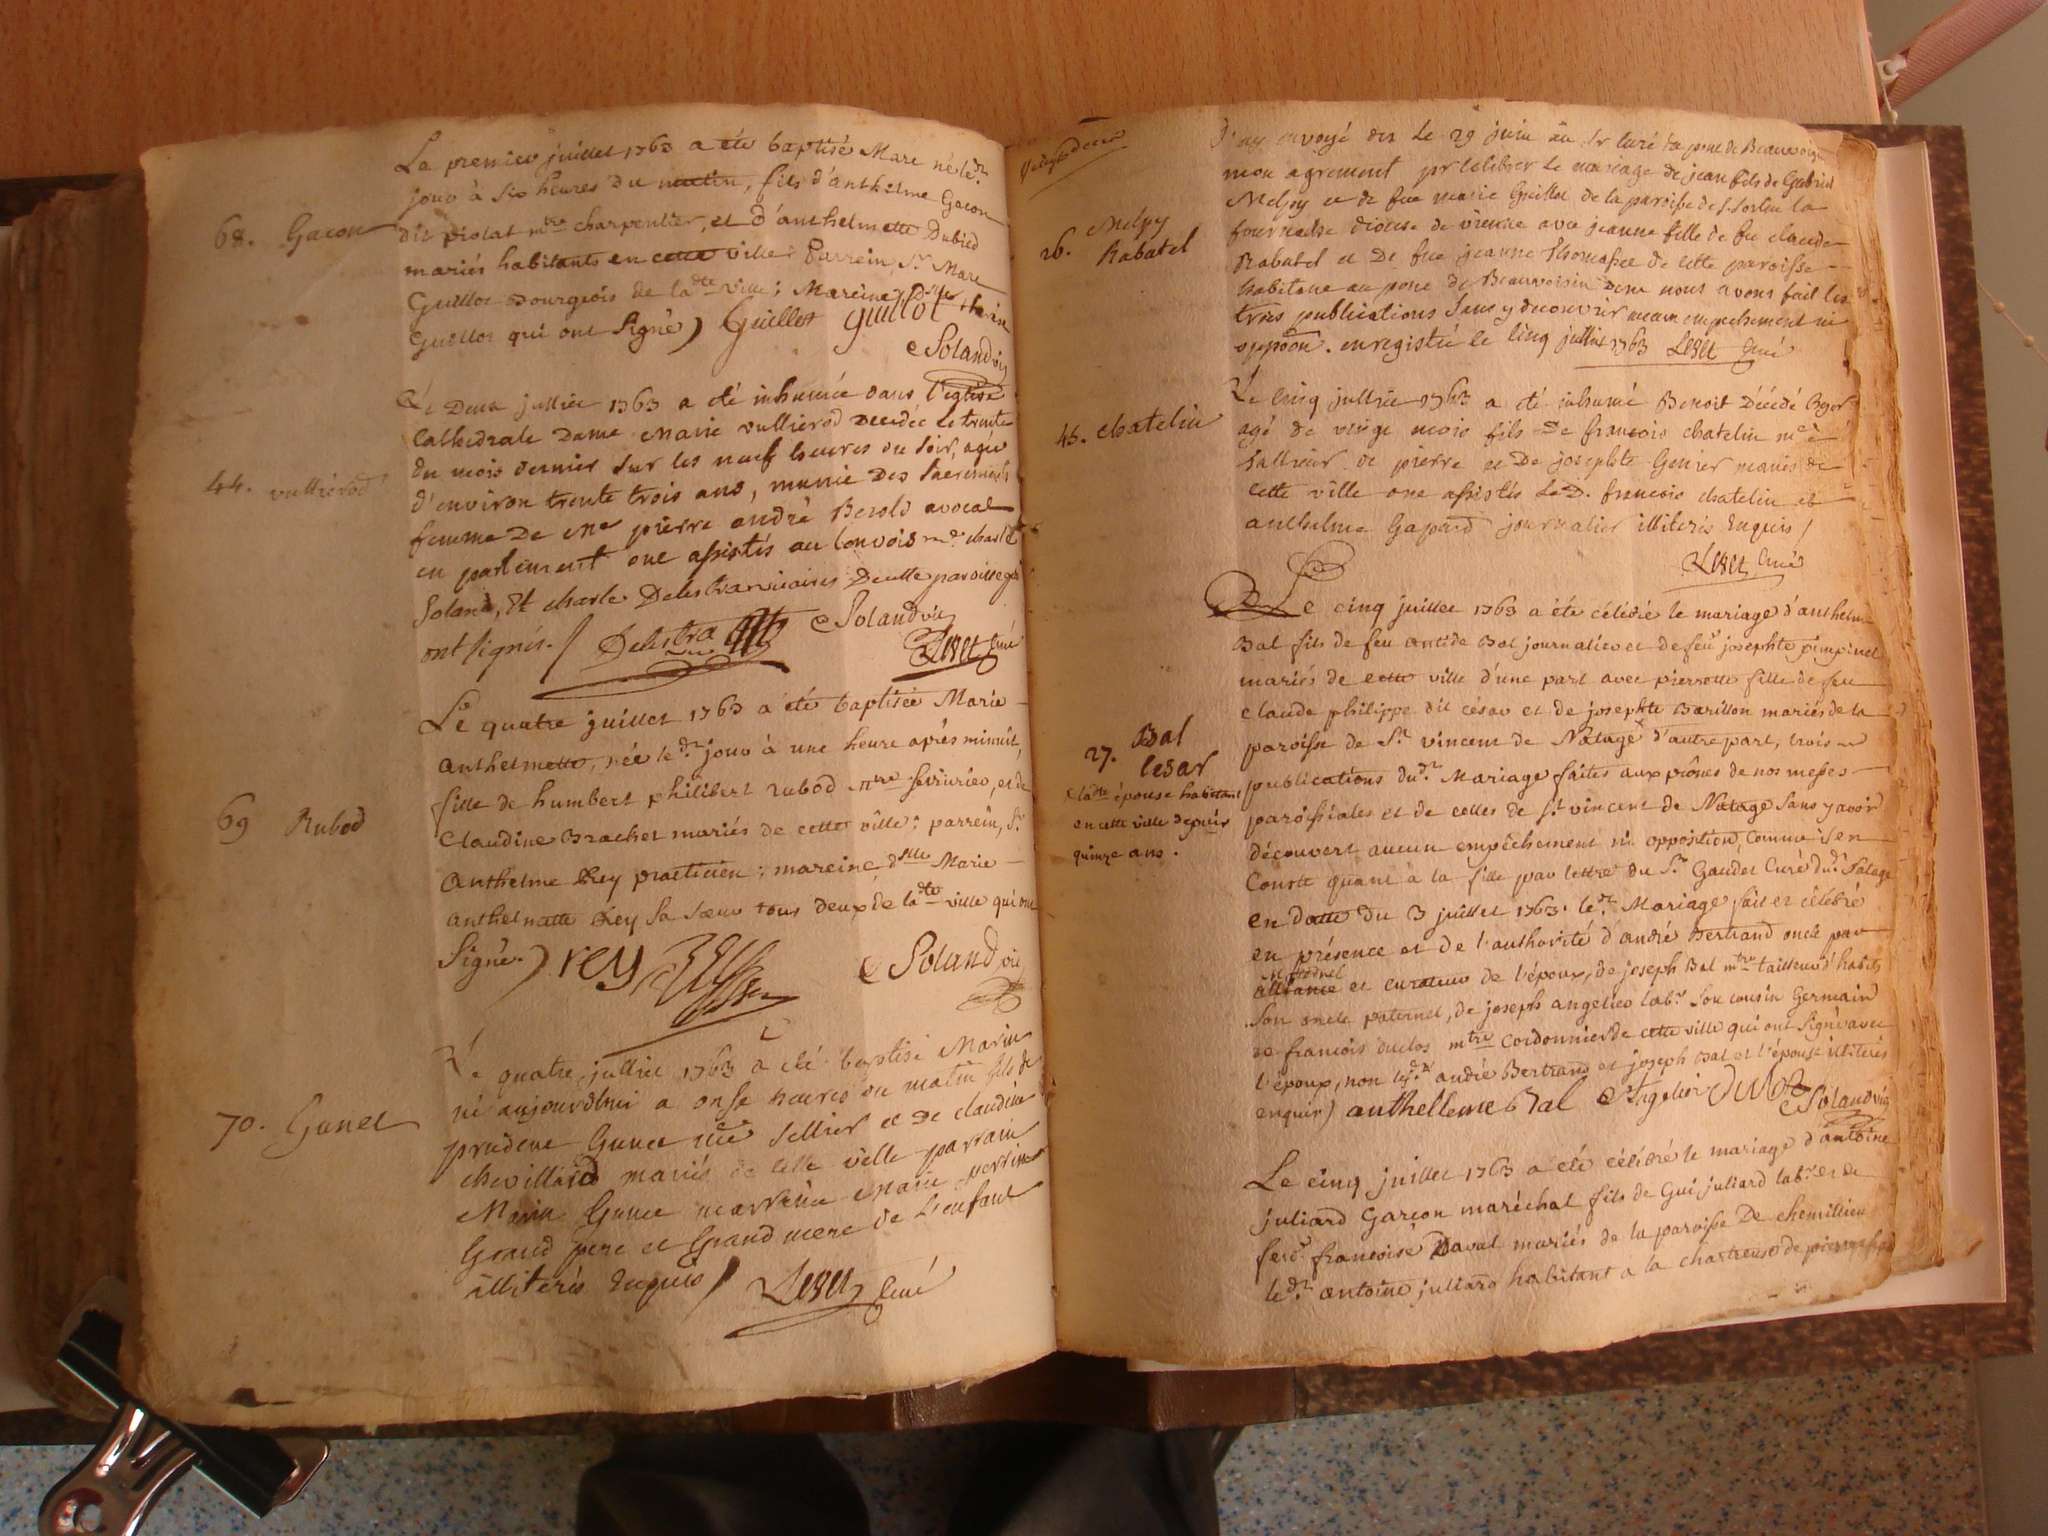 Le premier juillet 1763 a été baptisé Marc né le dt
jour à six heures du matin, fils d'anthelme Gacon
68. Gacon
dit piolat mtre charpentier, et d'anthelmette Dubied
mariés habitants en cette ville: Parrein, Sr Marc
Guillot Bourgeois de la dte ville; Mareine, Dlle
Guillot qui ont signé) Guillot guillot
Soland vic
Le Deux julliet 1763 a été inhumée dans l'eglise
Cathedrale Dame Marie vullierod Decedée le trente
du mois dernier sur les neuf heures du soir, agée
44. vullierod
d'environ trente trois ans, munie des Sacrements
femme De Me pierre andré Berold avocat
en parlement ont assistés au Convois
Soland, Et charle Delestra vicaires De cette paroisse qui
ont signés. / Delestra Solandvic
Leret Curé
Le quatre juillet 1763 a été baptisée Marie
anthelmette, née le dt jour à une heure après minuit,
fille de humbert philibert rubod mtre serrurier, et de
69 Rubod
Claudine Brachet mariés de cette ville; parrein, Sr
anthelme Rey praticien; mareine dslle Marie
anthelmette Rey sa sœur tous deux de la dte ville qui ont
Signé.) rey Solandvic
Le quatre julliet 1763 a été baptisé Marin
né aujourdhui a onse heures du matin fils de
70. Gunet
prudent Gunet me Sellier et de claudine
chevilliard mariés de cette ville parrain
Marin Gunet marreine Marie perrine
Grand pere et Grand mere de L'enfant
illiterés Enquis / Leret Curé
J'ay envoyé des Le 29 juin au Sr curé du pont de Beauvoisin
mon agrement pr celebrer le mariage de jean fils de Gabriel
26. Meljoy
Rabatel
Meljoy et de fue marie Guillot de la paroisse de S. Sorlin la
diocese de vienne avec jeanne fille de fu claude
Rabatel et De fue jeanne Thomasset de cette paroisse
habitante au pont de Beauvoisin dont nous avons fait les
trois publications Sans y decouvrir aucun empechement ni
oppôôn. enregistré le Cinq julliet 1763 Leret Curé
Le Cinq julliet 1763 a été inhumé Benoit Décédé
45. chatelin
agé de vingt mois fils De francois chatelin me
Tallieur de pierre et De josephte Genier mariés de
cette ville ont assistés Le D. francois chatelin et
anthelme Gapard journalier illiterés Enquis /
Leret Curé
Le cinq juillet 1763 a été célébré le mariage d'anthelme
Bal fils de feu antide Bal journalier et de feue josephte pimpinel
mariés de cette ville d'une part avec pierrette fille de feu
Claude philippe dit césar et de josephte Barillon mariés de la
27. Bal
Cesar
paroisse de St vincent de Natage d'autre part, trois
publications dudt Mariage faites aux prônes de nos messes
la dte épouse habitant
en cette ville depuis
quinze ans.
paroissiales et de celles de St vincent de Natage sans y avoir
découvert aucun empêchement ni opposition, comme il en
Conste quant à la fille par lettre du Sr Gaudet Curé dudt Natage
en datte du 3 juillet 1763. le dt Mariage fait et célébré
en présence et de l'authorité d'andré Bertrand oncle par
maternel
alliance et curateur de l'époux, de joseph Bal mtre tailleur d'habits
son oncle paternel, de joseph angelier labr. son cousin Germain
de francois duclos mtre cordonnier de cette ville qui ont signé avec
l'époux, non lesdts andré Bertrand et joseph Bal et l'épouse illiterés
enquis) anthelleme bal angelier Solandvic
Le cinq juillet 1763 a été célébré le mariage d'antoine
juliard Garçon maréchal fils de Gui juliard labr. et de
feue francoise Daval mariés de la paroisse De chemillieu
le dt antoine juliard habitant a la chartreuse de pierre